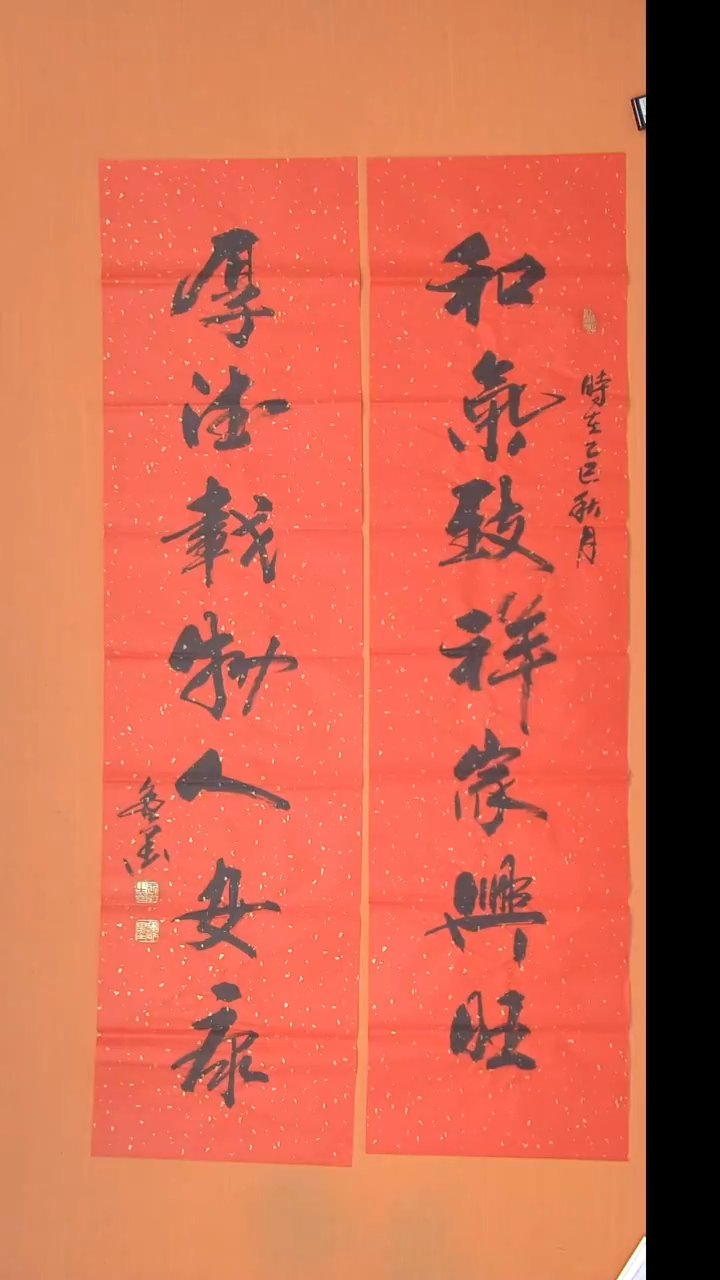 時在乙巳秋月
和氣致祥家興旺
厚德載物人安康